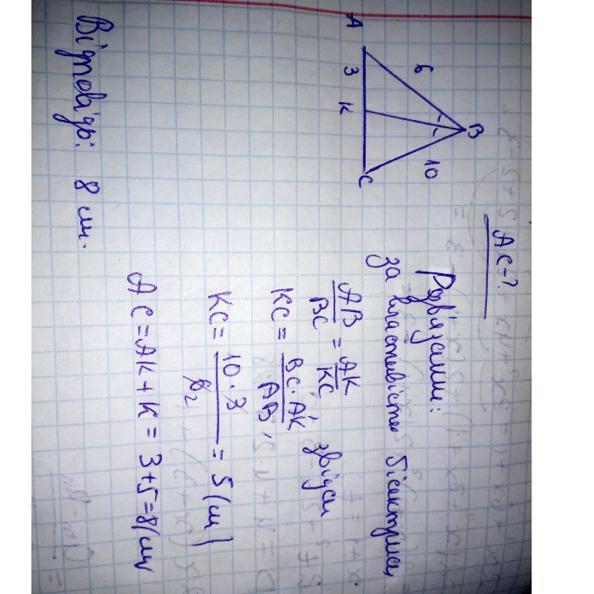 AC-?
A 3 K C
6
B
10
Розв'язання:
за властивістю бісектриси
AB/BC = AK/KC, звідси
KC = BC·AK/AB,
KC = 10·3/6 2 = 5 (см)
AC = AK + K = 3+5=8(см)
Відповідь: 8 см.